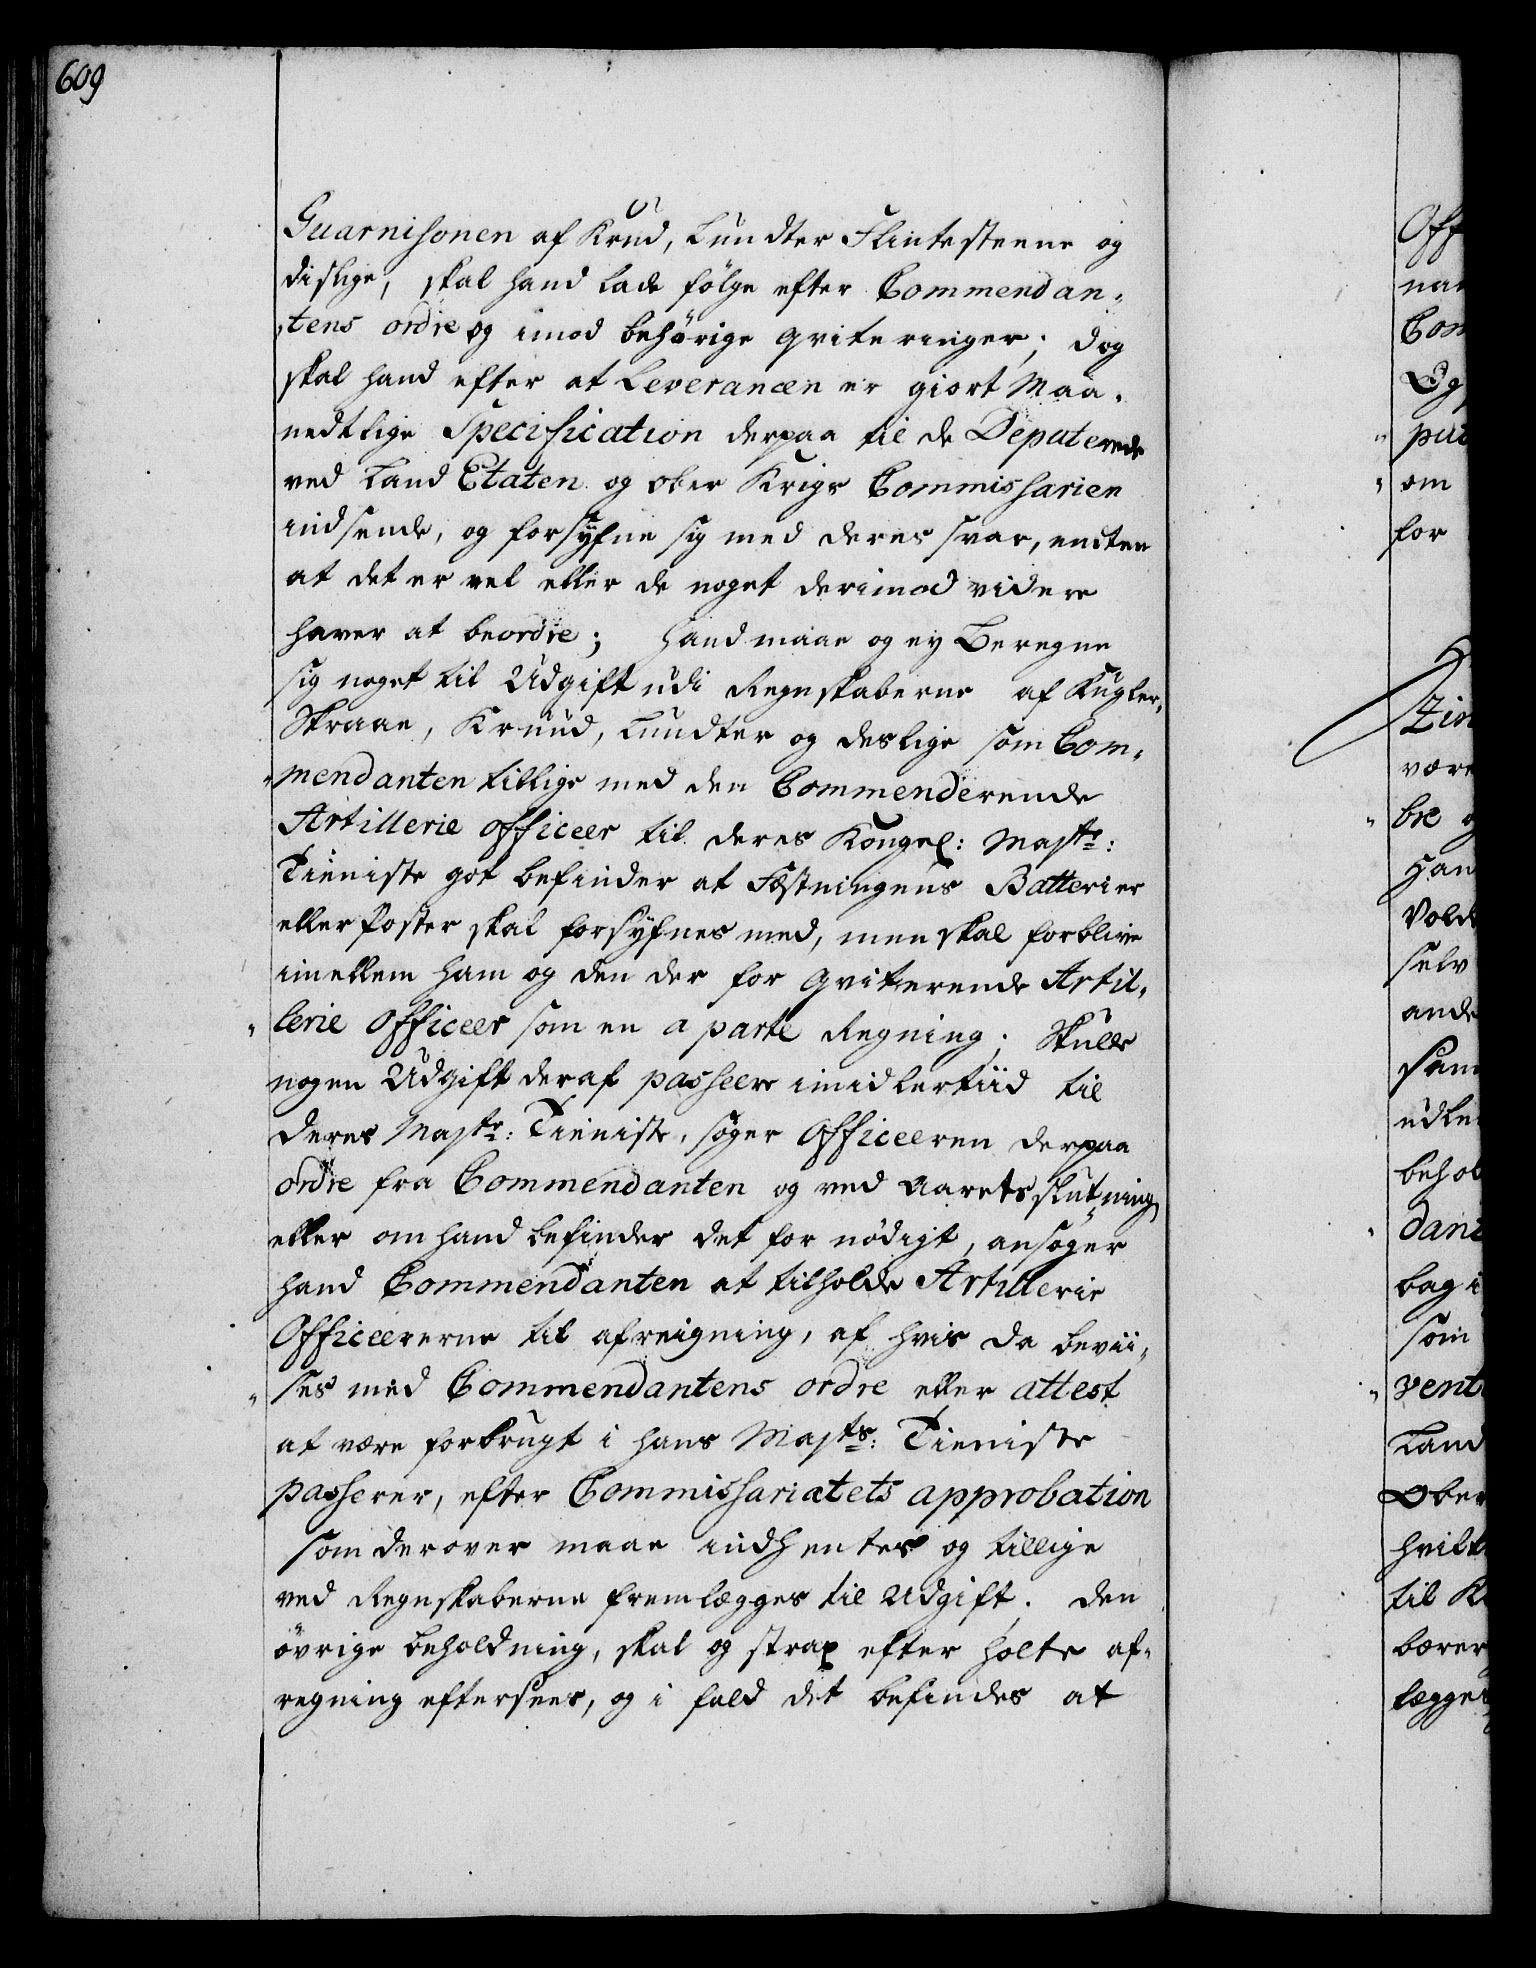 609
Guarnisonen af Krud, Lundter Flintesteene og
dislige, skal hand lade fölge efter Commendan-
tens ordre og imod behörige qviteringer; dog
skal hand efter at Leverancen er giort Maa-
nedtlige Specification derpaa til de Deputerede
ved Land Etaten og ober Krigs Commissarien
indsende, og forsyfne sig med deres svar, endten
at det er vel eller de noget derimod videre
haver at beordre; hand maae og ey Beregne
sig noget til Udgift udi Regnskaberne af Kugler,
Skraae, Kruud, Lundter og deslige som Com-
mendanten tillige med den Commenderende
Artillerie officeer til deres Kongel: Majts:
Tieniste got befinder at Fæstningens Batterier
eller Poster skal forsyfnes med, men skal forblive
imellem ham og den der for qviterende Artil-
lerie Officeer som en a parte Regning; Skulle
nogen Udgift deraf passeere imidlertiid til
deres Majts: Tieniste, söger Officeeren derpaa
ordre fra Commendanten og ved Aarets slutning
eller om hand befinder det for nödigt, ansöger
hand Commendanten at tilholde Artillerie
Officeererne til afreigning, af hvis da bevii-
ses med Commendantens ordre eller attest
at være forbrugt i hans Majts: Tieniste
passerer, efter Commissariatets approbation
som derover maae indhentes og tillige
ved Regnskaberne fremlægges til Udgift. den
övrige beholdning, skal og strax efter holte af-
regning eftersees, og i fald det befindes at
Off
Com
Og
put
om
for
være
bre
Han
Volde
selv
ande
udle
behol
dant
bag i
som
vent
Land
Ober
hvilk
til K
bærer
lægger